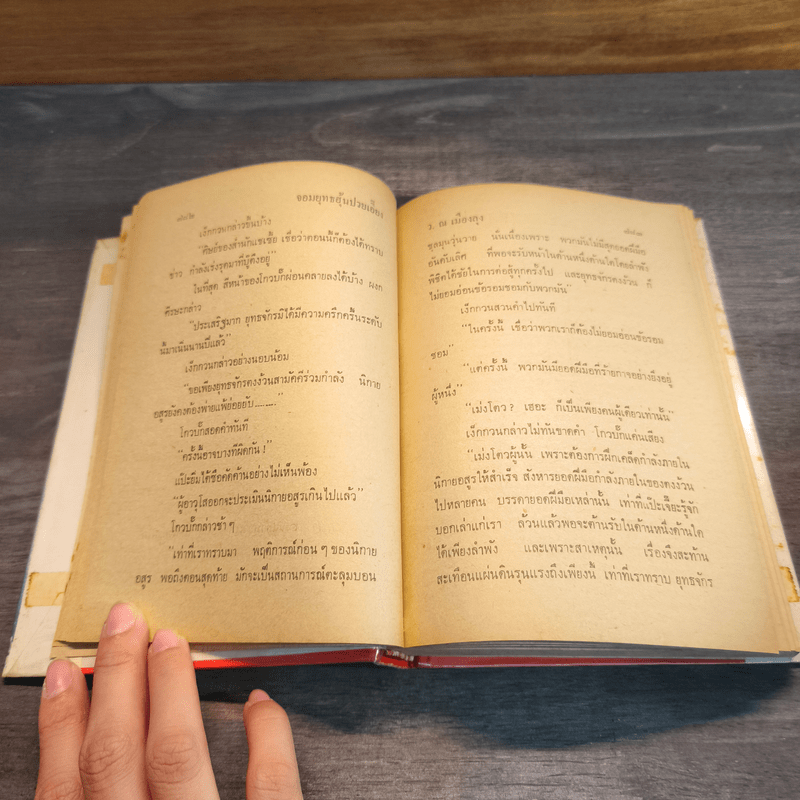 ๘๘๒ จอมยุทธอุ้นปวยเอี๊ยง
เง็กกวนกล่าวขึ้นบ้าง
"ศิษย์ของสำนักแชเซ้อ เชื่อว่าตอนนี้ก็ต้องได้ทราบ
ข่าว กำลังเร่งรุดมาที่ปู้ตึ้งอยู่"
ในที่สุด สีหน้าของโกวบั๊กผ่อนคลายลงได้บ้าง ผงก
ศีรษะกล่าว
"ประเสริฐมาก ยุทธจักรมิได้มีความครึกครื้นระดับ
นี้มาเนิ่นนานปีแล้ว"
เง็กกวนกล่าวอย่างนอบน้อม
"ขอเพียงยุทธจักรตงง้วนสามัคคีร่วมกำลัง นิกาย
อสูรยังคงต้องพ่ายแพ้ย่อยยับ........."
โกวบั๊กสอดคำทันที
"ครั้งนี้อาจบางทีผิดกัน!"
แป๊ะยิ้มไต้ซือคัดค้านอย่างไม่เห็นพ้อง
"ผู้อาวุโสออกจะประเมินนิกายอสูรเกินไปแล้ว"
โกวบั๊กกล่าวช้า ๆ
"เท่าที่เราทราบมา พฤติการณ์ก่อน ๆ ของนิกาย
อสูร พอถึงตอนสุดท้าย มักจะเป็นสถานการณ์ตะลุมบอน
ว. ณ เมืองลุง
ชุลมุนวุ่นวาย นั่นเนื่องเพราะ พวกมันไม่มีสุดยอดฝีมือ
อันดับเลิศ ที่พอจะรับหน้าในด้านหนึ่งด้านใดโดยลำพัง
พิชิตได้ชัยในการต่อสู้ทุกครั้งไป และยุทธจักรตงง้วน ก็
ไม่ยอมอ่อนข้อรอมชอมกับพวกมัน"
เง็กกวนสวนคำไปทันที
"ในครั้งนี้ เชื่อว่าพวกเราก็ต้องไม่ยอมอ่อนข้อรอม
ชอม"
"แต่ครั้งนี้ พวกมันมียอดฝีมือที่ร้ายกาจอย่างยิ่งอยู่
ผู้หนึ่ง"
"เม่งโตว? เฮอะ ก็เป็นเพียงคนผู้เดียวเท่านั้น"
เง็กกวนกล่าวไม่ทันขาดคำ โกวบั๊กแค่นเสียง
"เม่งโตวผู้นั้น เพราะต้องการฝึกเคล็ดกำลังภายใน
นิกายอสูรให้สำเร็จ สังหารยอดฝีมือกำลังภายในของตงง้วน
ไปหลายคน บรรดายอดฝีมือเหล่านั้น เท่าที่แป๊ะเจี๊ยะรู้จัก
บอกเล่าแก่เรา ล้วนแล้วพอจะต้านรับในด้านหนึ่งด้านใด
ได้เพียงลำพัง และเพราะสาเหตุนั้น เรื่องจึงสะท้าน
สะเทือนแผ่นดินรุนแรงถึงเพียงนี้ เท่าที่เราทราบ ยุทธจักร